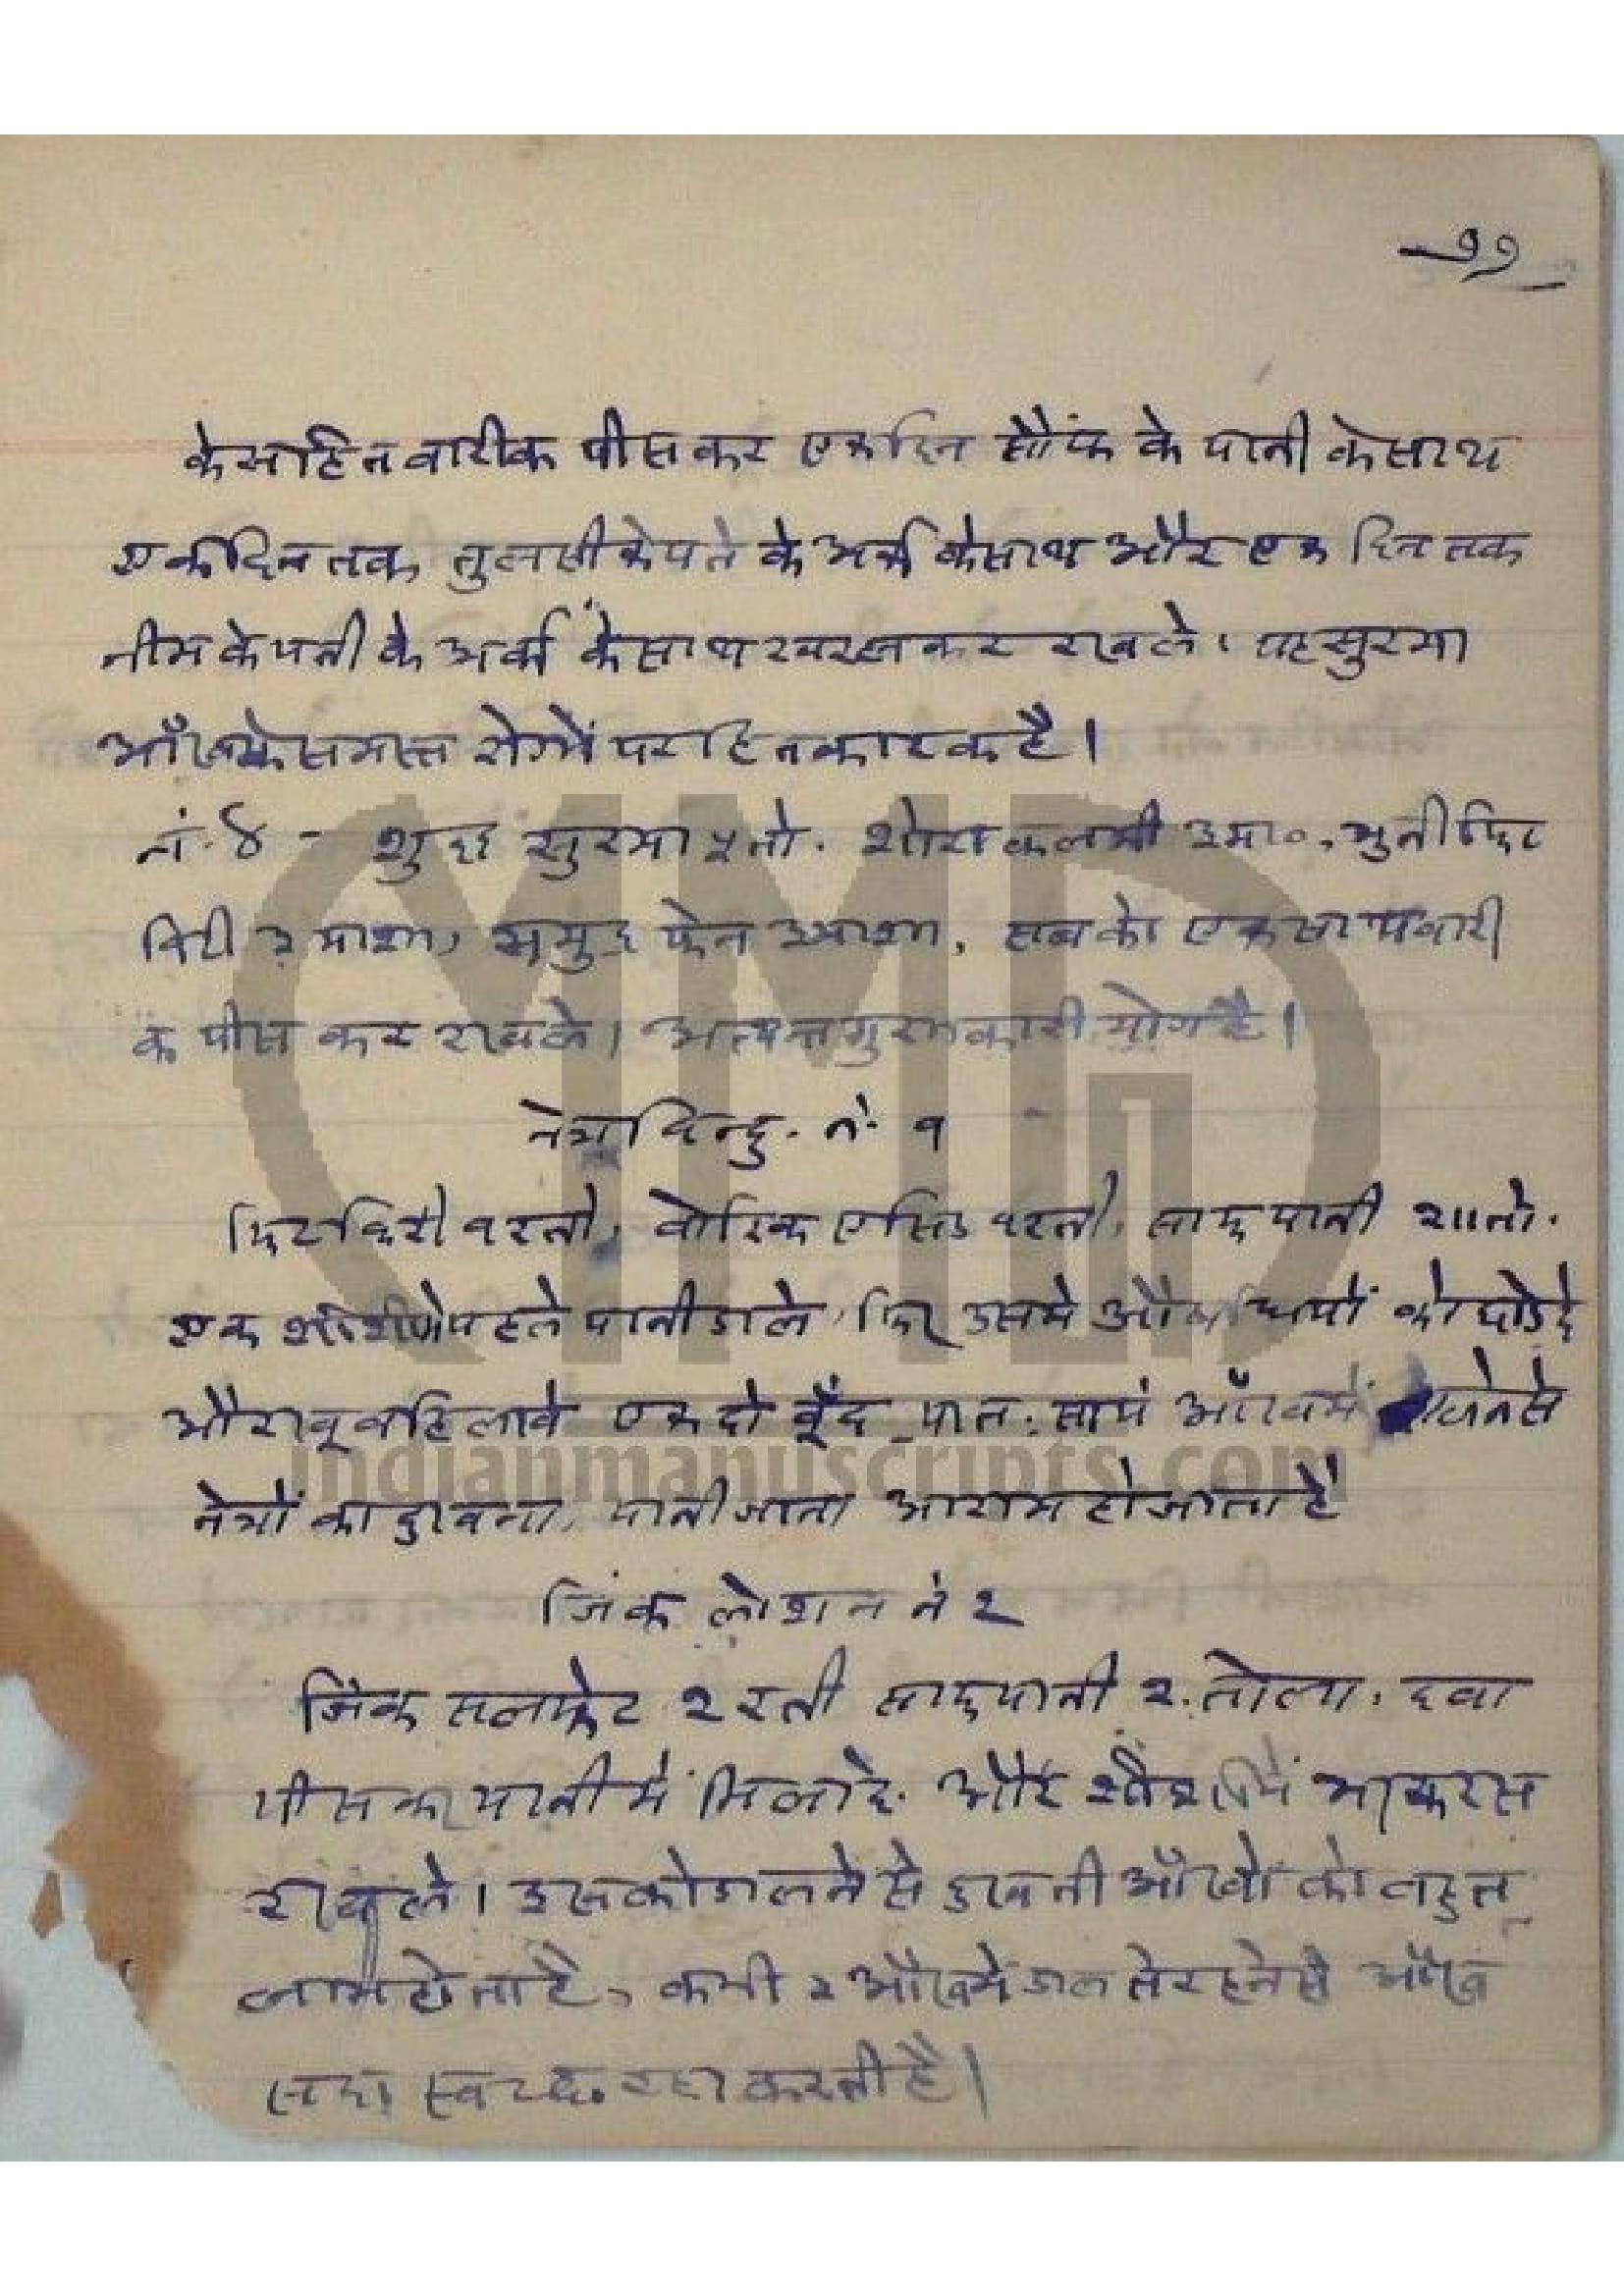 ११
के सहित वारीक पीस कर एकदिन सौंफ के पानी के साथ
एकदिन तक तुलसी के पते के अर्क के साथ और एक दिन तक
नीम के पत्ती के अर्क के साथ खरल कर रखले। यह सुरमा
आँख के समस्त रोगों पर हितकारक है।
नं. ४ - शुद्ध सुरमा ५ तो. शोरा कलमी ३ मा०, भुनी फिट
किरी ३ माशा, समुद्र फेन ३ माशा, सब को एक साथ वारी
क पीस कर रखले। अत्यन्त गुणकारी योग है।
नेत्र विन्दु. नं. १
फिटकिरी १ रत्ती, वोरिक एसिड १ रत्ती, साफ पानी २॥ तो.
एक शीशी में पहले पानी डाले, फिर उसमे औषधियों को छोड़दे
और खूब हिलावे एक दो बूँद प्रात: सायं आँख में डालने से
नेत्रों का दुखना, पानी जाना आराम हो जाता है
जिंक लोशन नं २
जिंक सलफेट २ रत्ती साफ पानी २ तोला, दवा
पीस कर पानी में मिलादे. और शीशी में भरकर
रखले। इसको डालने से दुखती आँखो को वहुत
लाभ होता है, कभी २ आँख में डालते रहने से आँख
सदा स्वच्छ रहा करती है।
MMD
indianmanuscripts.com